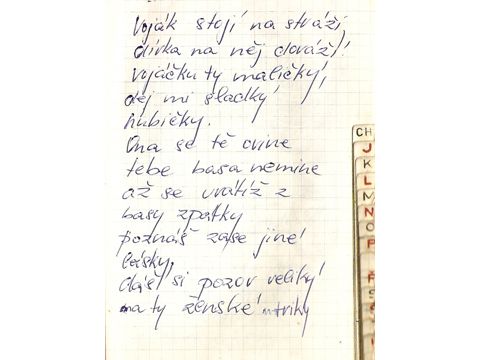 Voják stojí na stráži
dívka na něj doráží!
vojáčku ty maličky,
dej mi sladky
hubičky.
Ona se tě vine
tebe basa nemine
až se vrátíž z
basy zpatky
poznáš zase jiné
lásky,
dáš si pozor veliký
na ty ženské triky
CH
J
K
L
M
N
O
P
Ř
S